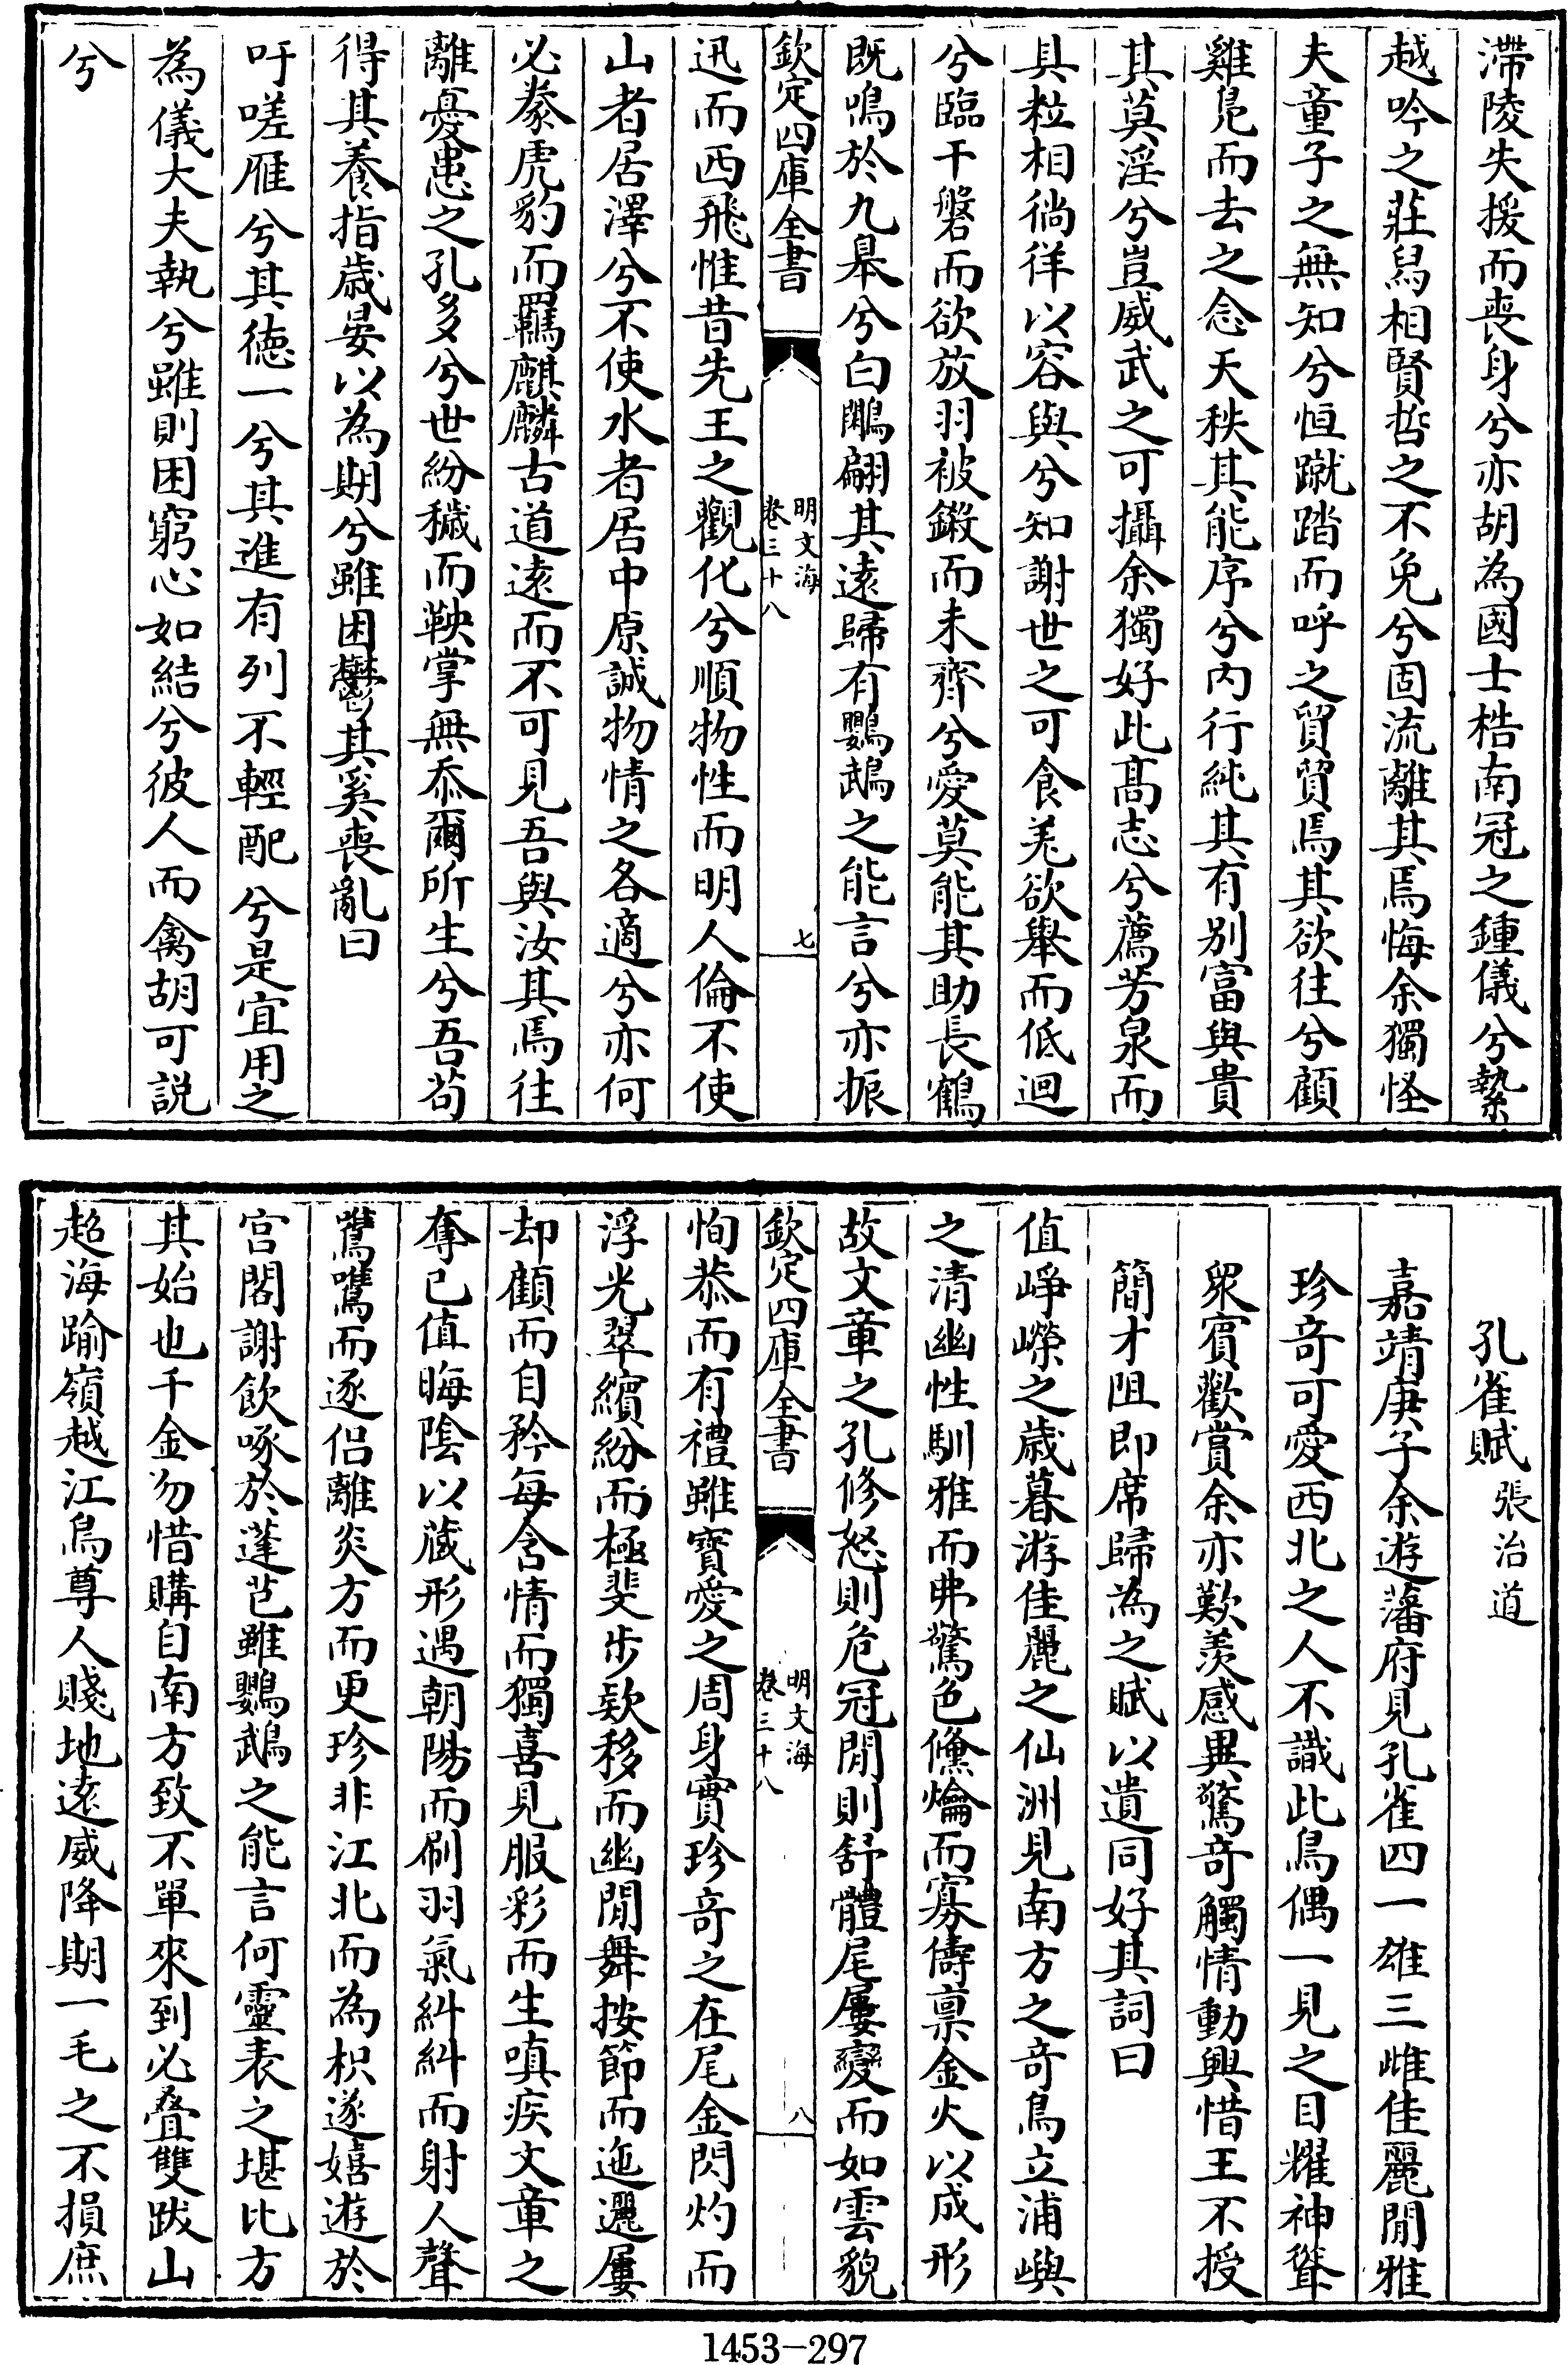 滯陵失援而喪身兮亦胡為國士梏南冠之鍾儀兮縶
越吟之莊舄相賢哲之不免兮固流離其焉悔余獨怪
夫童子之無知兮恒蹴踏而呼之貿貿焉其欲往兮顧
雞鳬而去之念天秩其能序兮内行純其有别富與貴
其莫淫兮豈威武之可攝余獨好此髙志兮薦芳泉而
具粒相徜徉以容與兮知謝世之可食羌欲舉而低迴
兮臨干磐而欲放羽被鎩而未齊兮愛莫能其助長鶴
既鳴於九皋兮白鷴翩其遠歸有鸚鵡之能言兮亦振
欽定四庫全書
明文海
卷三十八
七
迅而西飛惟昔先王之觀化兮順物性而明人倫不使
山者居澤兮不使水者居中原誠物情之各適兮亦何
必豢虎豹而羈麒麟古道遠而不可見吾與汝其焉往
離憂患之孔多兮世紛穢而鞅掌無忝爾所生兮吾苟
得其養指歳晏以為期兮雖困鬱其奚喪亂曰
吁嗟雁兮其徳一兮其進有列不輕配兮是宜用之
為儀大夫執兮雖則困窮心如結兮彼人而禽胡可説
兮
孔雀賦 張治道
嘉靖庚子余遊藩府見孔雀四一雄三雌佳麗閒雅
珍竒可愛西北之人不識此鳥偶一見之目耀神聳
衆賓歡賞余亦歎羨感異驚竒觸情動興惜王不授
簡才阻即席歸為之賦以遺同好其詞曰
值崢嶸之歳暮游佳麗之仙洲見南方之竒鳥立浦嶼
之清幽性馴雅而弗驚色儵爚而寡儔禀金火以成形
故文章之孔修怒則危冠閒則舒體尾屢變而如雲貌
欽定四庫全書
明文海
卷三十八
八
恂恭而有禮雖寳愛之周身實珍竒之在尾金閃灼而
浮光翠繽紛而極斐步欵移而幽閒舞按節而迤邐屢
却顧而自矜每含情而獨喜見服彩而生嗔疾文章之
奪己值晦隂以藏形遇朝陽而刷羽氣糾糾而射人聲
鶯嚶而逐侣離炎方而更珍非江北而為枳遂嬉遊於
宫閣謝飲啄於蓬芑雖鸚鵡之能言何靈表之堪比方
其始也千金勿惜購自南方致不單來到必叠雙跋山
超海踰嶺越江鳥尊人賤地遠威降期一毛之不損庶
1453-297